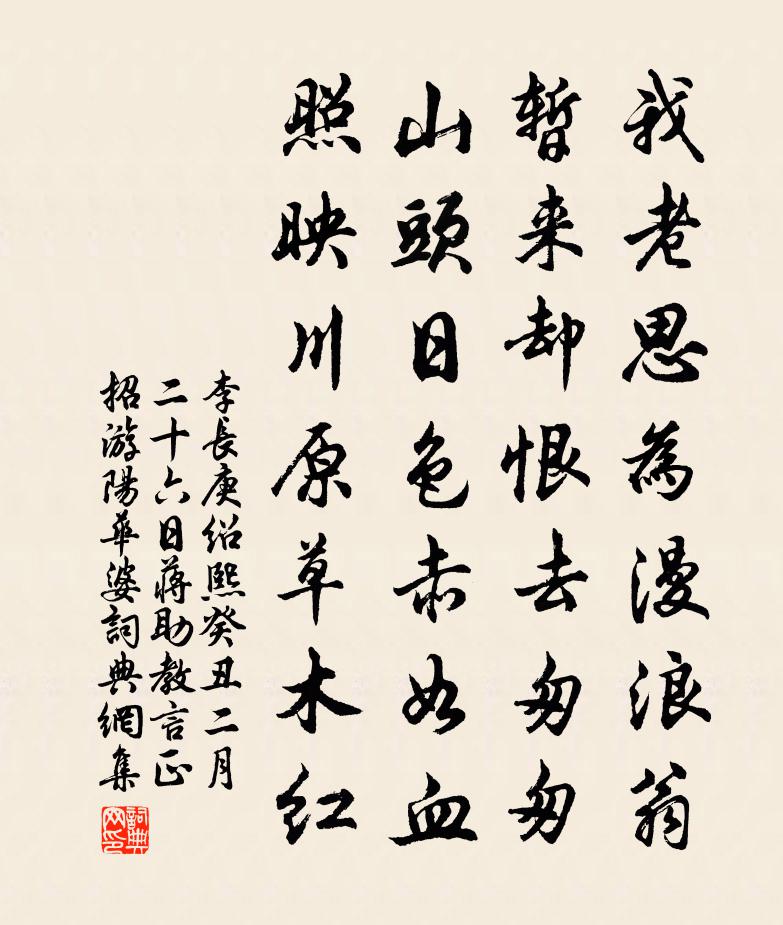 我老思為漫浪翁
暫来却恨去匆匆
山頭日色赤如血
照映川原草木红
李長庚绍熙癸丑二月
二十六日蒋助教言正
招游陽華婆詞典網集
詞典
网印